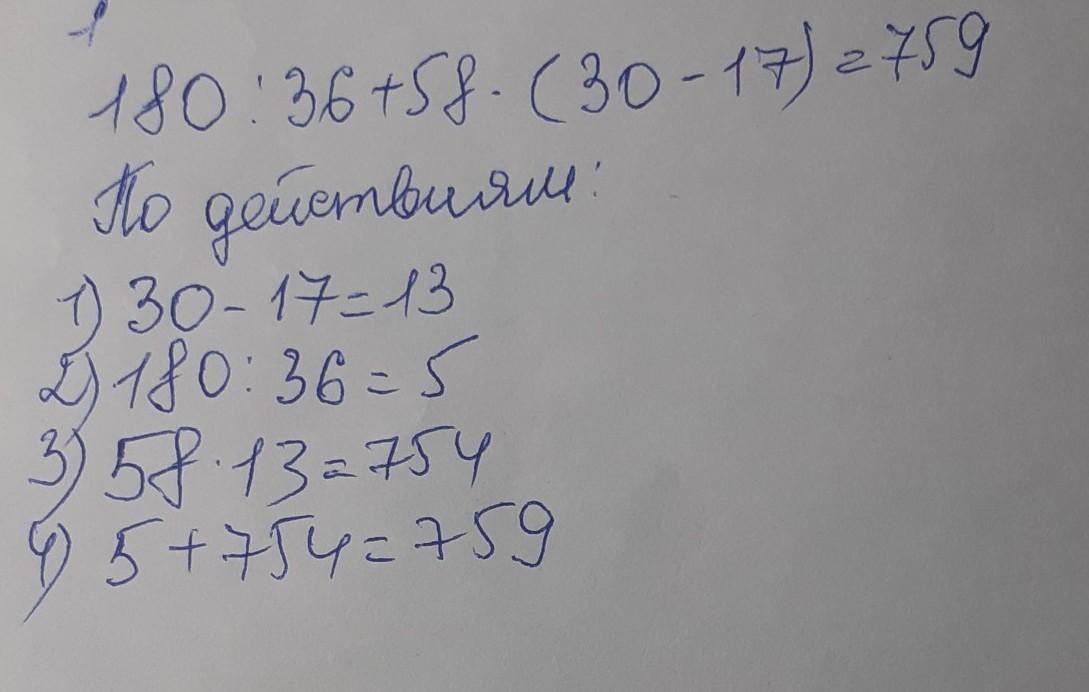 1
180 : 36 + 58 · (30 - 17) = 759
По действиям:
1) 30 - 17 = 13
2) 180 : 36 = 5
3) 58 · 13 = 754
4) 5 + 754 = 759